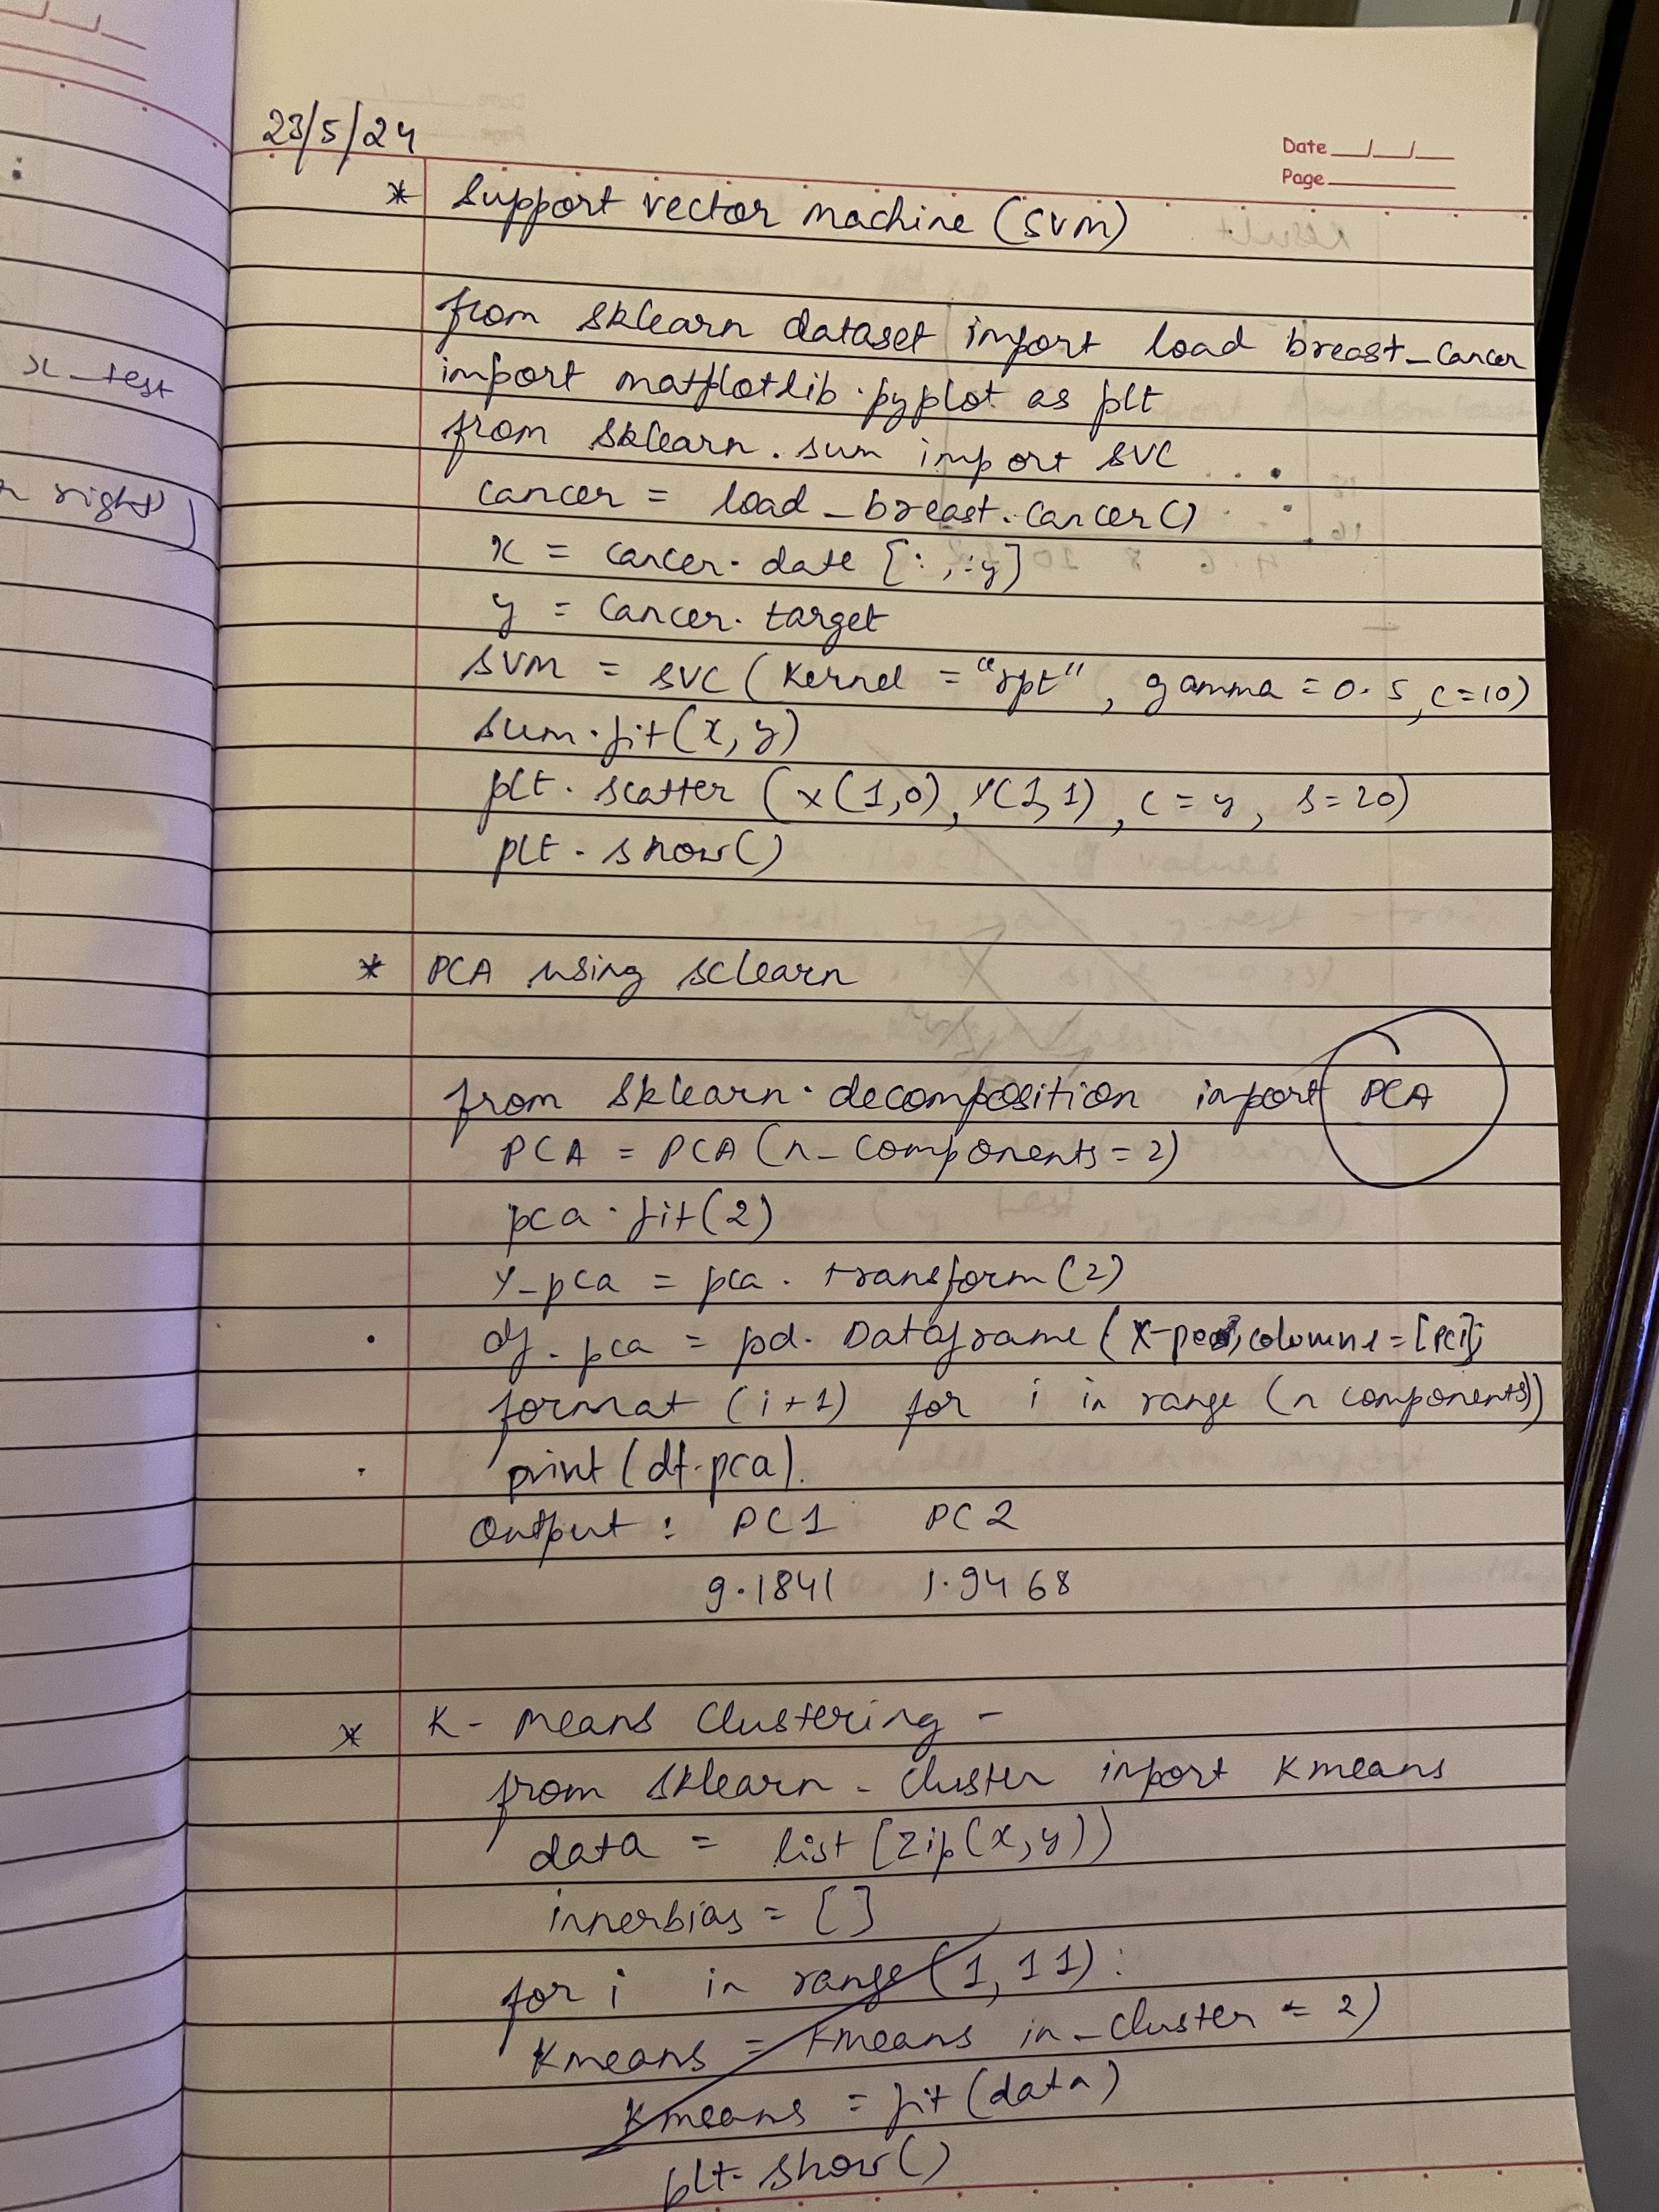 23/5/24
Date
Page
* Support vector machine (SVM)
from sklearn dataset import load breast_cancer
import matplotlib.pyplot as plt
from sklearn.sum import SVC
cancer = load_breast.cancer()
x = cancer.date [:,:y]
y = cancer.target
SVM = SVC (Kernel = "rpt", gamma = 0.5, c=10)
sum.fit(x, y)
plt.scatter (x(1,0), Y(1,1), c=y, s=20)
plt.show()
* PCA using sclearn
from sklearn.decomposition import PCA
PCA = PCA (n_components=2)
pca.fit(2)
Y_pca = pca.transform(2)
df.pca = pd.Dataframe (X-pca, columns=[PCi];
format (i+1) for i in range (n components))
print (df.pca).
Output : PC1 PC2
9.1841 1.9468
* K-means Clustering -
from sklearn - cluster import Kmeans
data = list (zip(x,y))
innerbias = []
for i in range(1,11):
Kmeans = kmeans in_cluster = 2)
Kmeans = fit (data)
plt.show()
x_test
right)